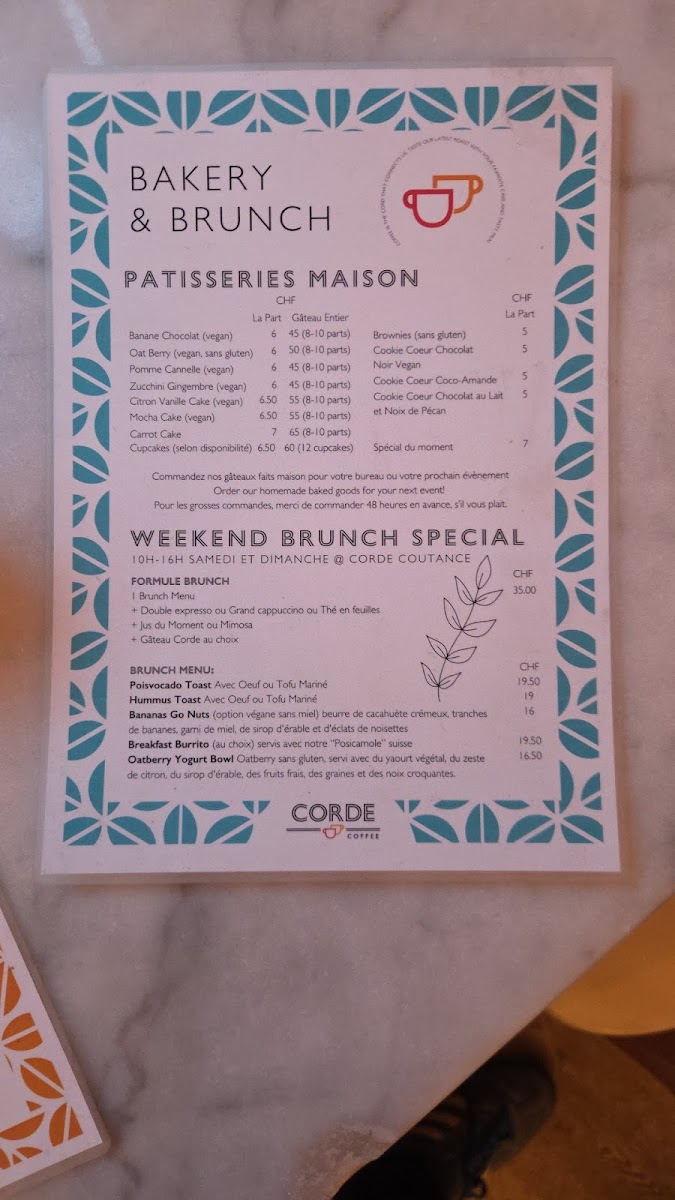 BAKERY
& BRUNCH
PATISSERIES MAISON
CHF
La Part Gâteau Entier
Banane Chocolat (vegan) 6 45 (8-10 parts)
Oat Berry (vegan, sans gluten) 6 50 (8-10 parts)
Pomme Cannelle (vegan) 6 45 (8-10 parts)
Zucchini Gingembre (vegan) 6 45 (8-10 parts)
Citron Vanille Cake (vegan) 6.50 55 (8-10 parts)
Mocha Cake (vegan) 6.50 55 (8-10 parts)
Carrot Cake 7 65 (8-10 parts)
Cupcakes (selon disponibilité) 6.50 60 (12 cupcakes)
CHF
La Part
Brownies (sans gluten) 5
Cookie Coeur Chocolat 5
Noir Vegan
Cookie Coeur Coco-Amande 5
Cookie Coeur Chocolat au Lait 5
et Noix de Pécan
Spécial du moment 7
Commandez nos gâteaux faits maison pour votre bureau ou votre prochain évènement
Order our homemade baked goods for your next event!
Pour les grosses commandes, merci de commander 48 heures en avance, s'il vous plait.
WEEKEND BRUNCH SPECIAL
10H-16H SAMEDI ET DIMANCHE @ CORDE COUTANCE
FORMULE BRUNCH CHF
1 Brunch Menu 35.00
+ Double expresso ou Grand cappuccino ou Thé en feuilles
+ Jus du Moment ou Mimosa
+ Gâteau Corde au choix
BRUNCH MENU: CHF
Poisvocado Toast Avec Oeuf ou Tofu Mariné 19.50
Hummus Toast Avec Oeuf ou Tofu Mariné 19
Bananas Go Nuts (option végane sans miel) beurre de cacahuète crémeux, tranches 16
de bananes, garni de miel, de sirop d'érable et d'éclats de noisettes
Breakfast Burrito (au choix) servis avec notre "Posicamole" suisse 19.50
Oatberry Yogurt Bowl Oatberry sans gluten, servi avec du yaourt végétal, du zeste 16.50
de citron, du sirop d'érable, des fruits frais, des graines et des noix croquantes.
CORDE
COFFEE